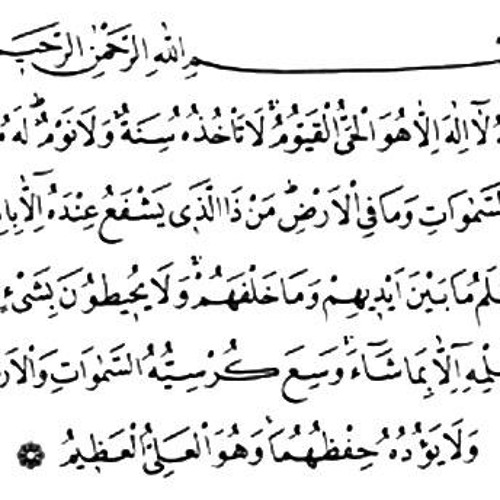 ـم اللّٰهِ الرَّحْمٰنِ الرَّحٖيـ
ـهُ لَٓا اِلٰهَ اِلَّا هُوَ اَلْحَىُّ الْقَيُّومُۚ لَا تَاْخُذُهُ سِنَةٌ وَلَا نَوْمٌۜ لَهُ مَـ
ـسَّمٰوَاتِ وَمَا فِى الْاَرْضِۜ مَنْ ذَا الَّذٖى يَشْفَعُ عِنْدَهُٓ اِلَّا بِاِ
ـلَمُ مَا بَيْنَ اَيْدٖيهِمْ وَمَا خَلْفَهُمْۚ وَلَا يُحٖيطُونَ بِشَىْءٍ
ـلْمِهٖٓ اِلَّا بِمَا شَٓاءَۚ وَسِعَ كُرْسِيُّهُ السَّمٰوَاتِ وَالْاَرْ
وَلَا يَؤُدُهُ حِفْظُهُمَاۚ وَهُوَ الْعَلِىُّ الْعَظٖيمُ